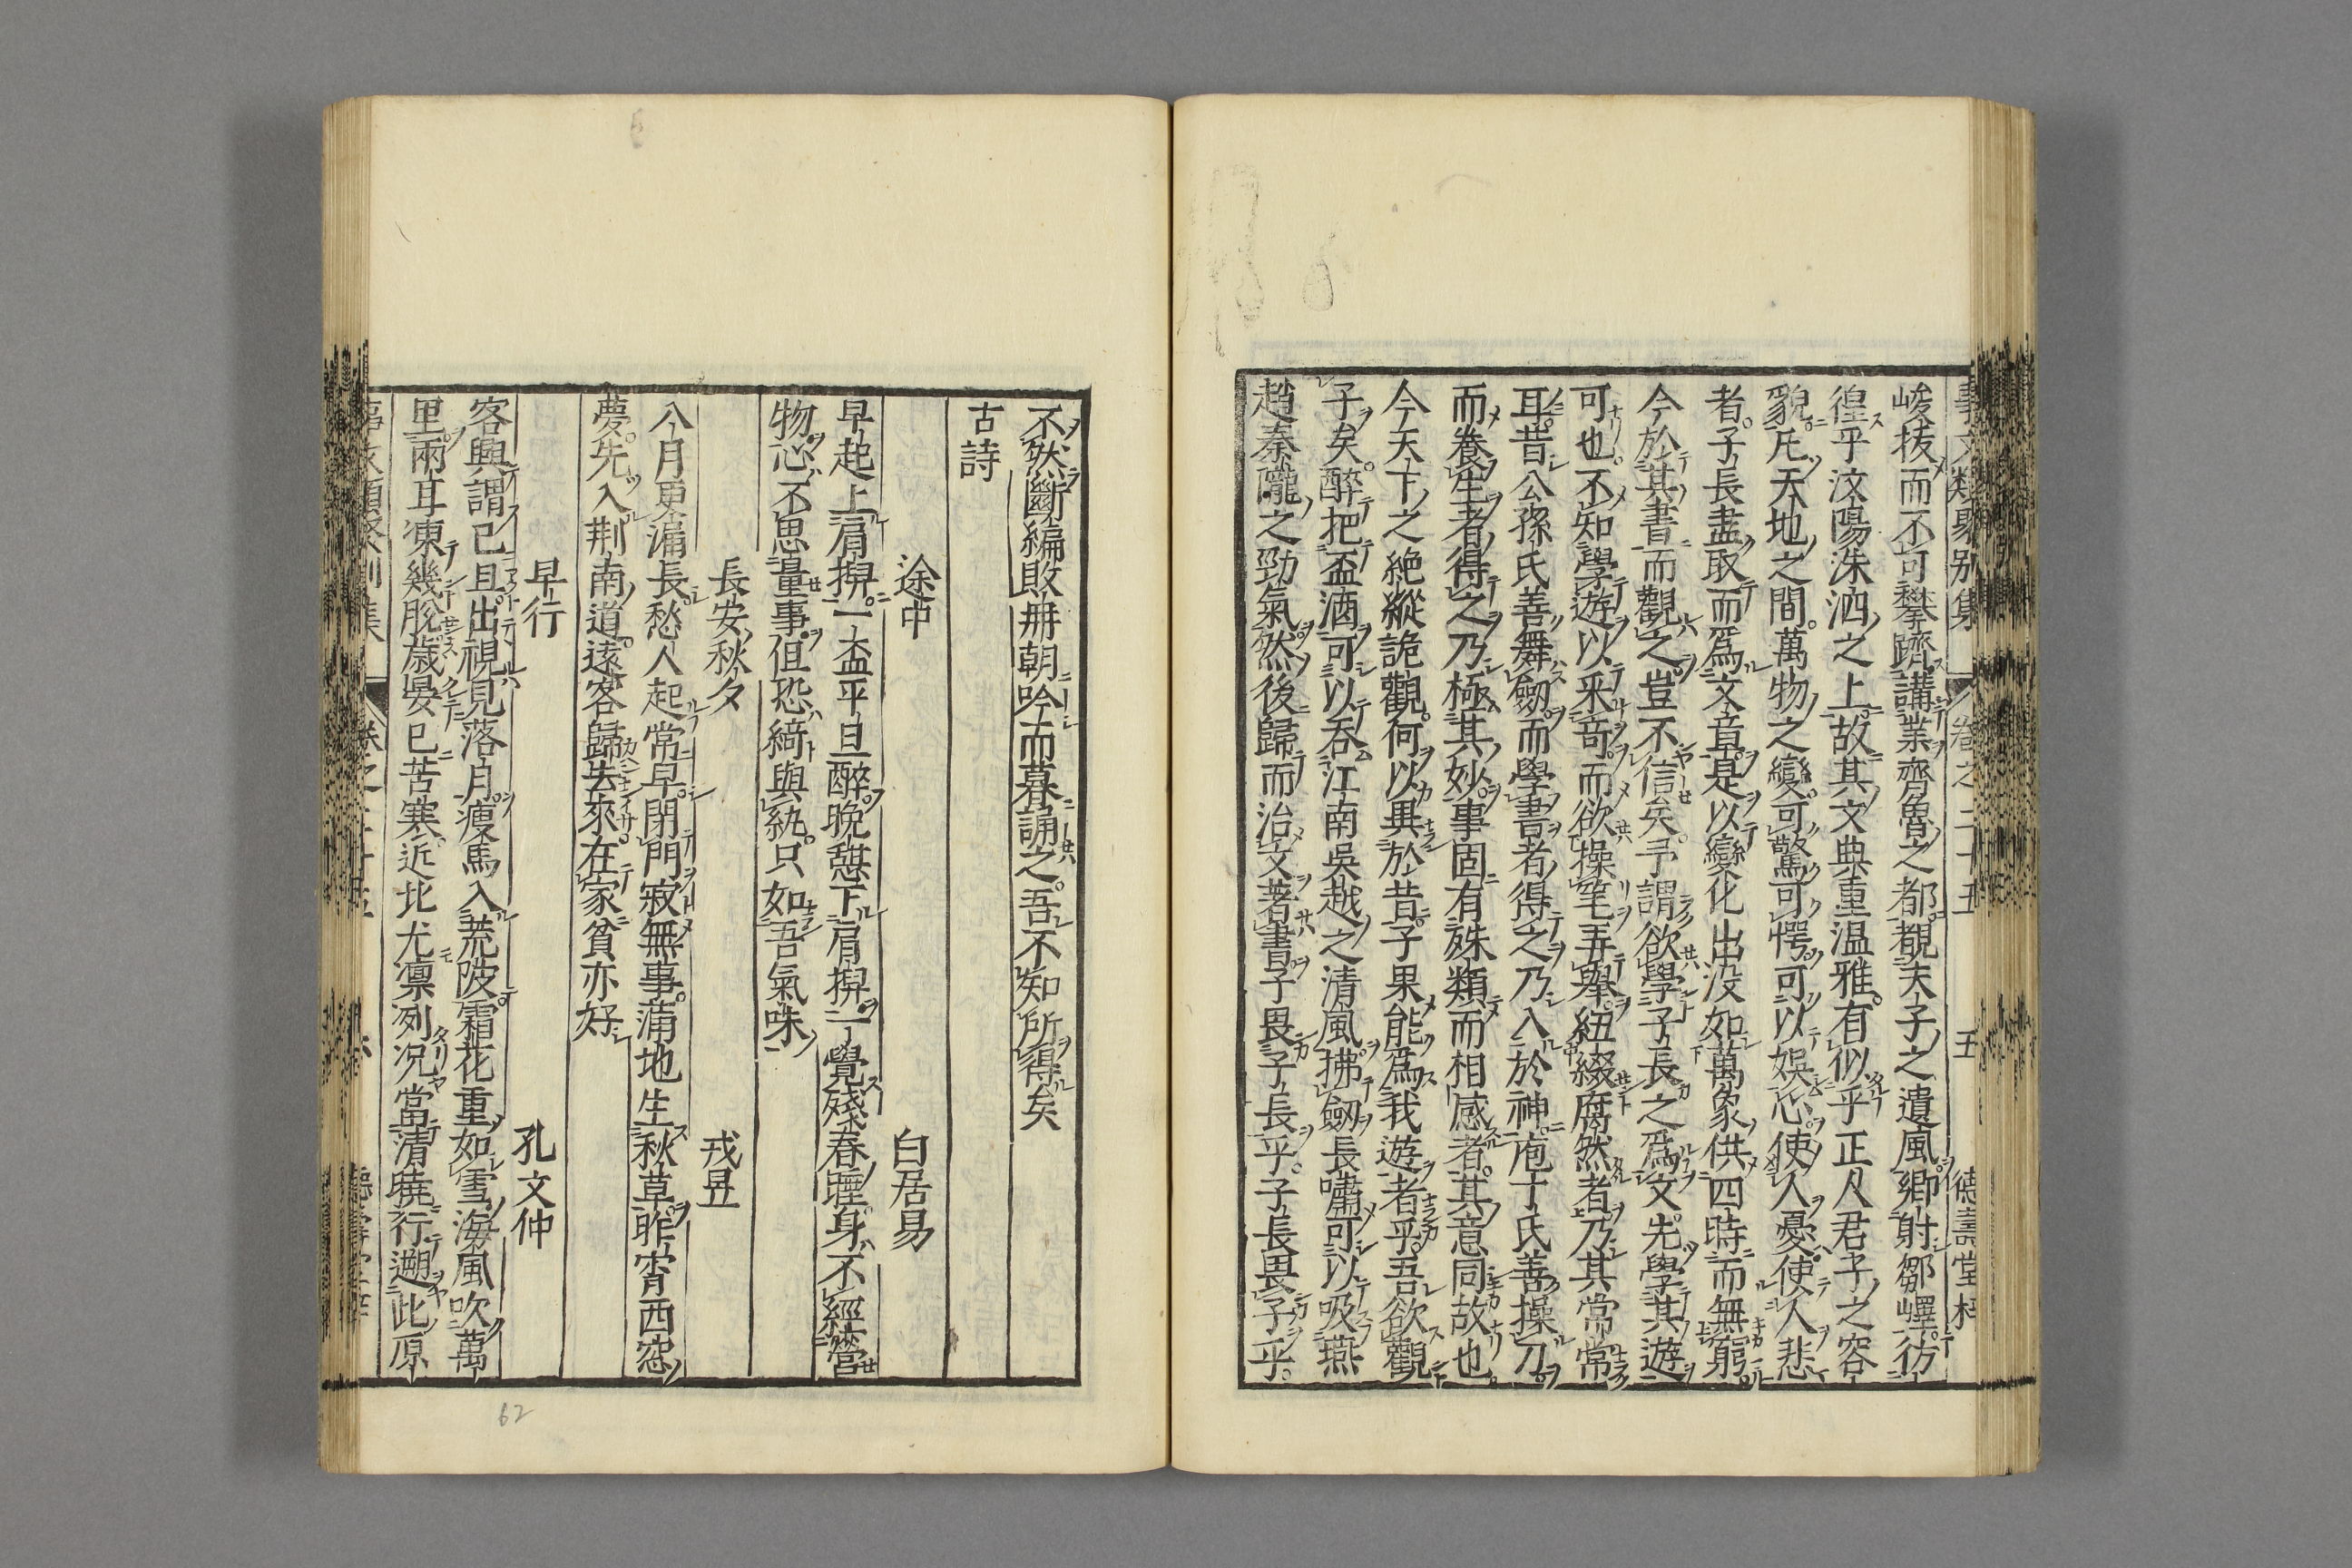 峻拔而不可攀躋講業齊魯之都覩夫子之遺風鄉射鄒嶧彷
徨乎汶陽洙泗之上故其文典重温雅有似乎正人君子之容
貌凡天地之間萬物之變可驚可愕可以娯心使人憂使人悲
者子長盡取而爲文章是以變化出没如萬象供四時而無窮
今於其書而觀之豈不信矣予謂欲學子長之爲文先學其遊
可也不知學遊以采奇而欲操笔弄舉紐綴腐然者乃其常常
耳昔公孫氏善舞劒而學書者得之乃入於神庖丁氏善操刀
而養生者得之乃極其妙事固有殊類而相感者其意同故也
今天下之絶縱詭觀何以異於昔子果能爲我遊者乎吾欲觀
子矣醉把盃酒可以吞江南吳越之清風拂劒長嘯可以吸燕
趙秦隴之勁氣然後歸而治文著書子畏子長乎子長畏子乎
不然斷編敗册朝吟而暮誦之吾不知所得矣
古詩
途中 白居易
早起上肩掜一盃平旦醉晩憇下肩掜一覺殘春睡身不經營
物心不思量事但恐綺與紈只如吾氣味
長安秋夕 戎昱
八月更漏長愁人起常早閉門寂無事蒲地生秋草昨宵西窓
夢先入荆南道遠客歸去來在家貧亦好
早行 孔文仲
客興謂已旦出視見落月瘦馬入荒陂霜花重如雪海風吹萬
里兩耳凍幾脫歲晏已苦寒近北尤凛冽况當清曉行遡此原